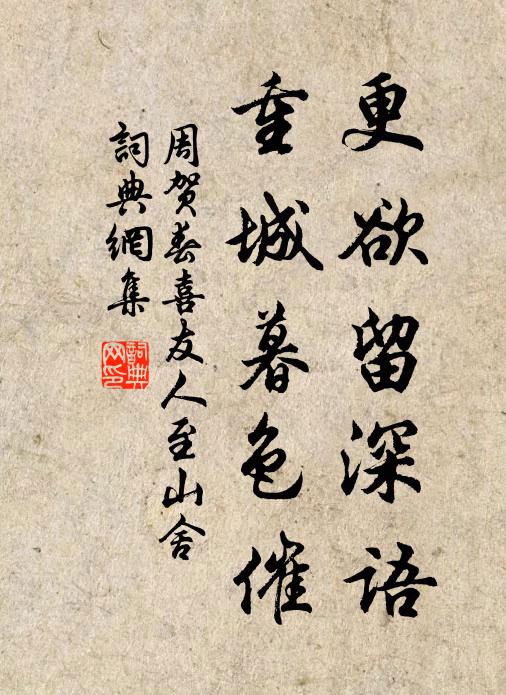 更欲留深語
重城暮色催
周賀春喜友人至山舍
詞典網集
詞典
网印